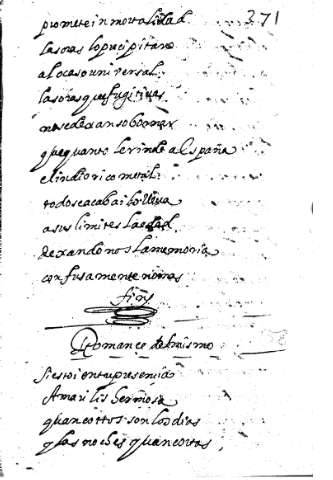 371
promete inmortalidad
las oras lo precipitan
al ocaso universal
las oras que fugitivas
no se dexan sobornar
que quanto le rinde al España
el indio rico metal
todo se acaba i lo lleva
a sus limites la edad
dexando nos la memoria
confusamente no mas
fin
Romance del mismo
Si estoi en tu presencia
Amarilis hermosa
quan cortos son los dias
y las noches quan cortas